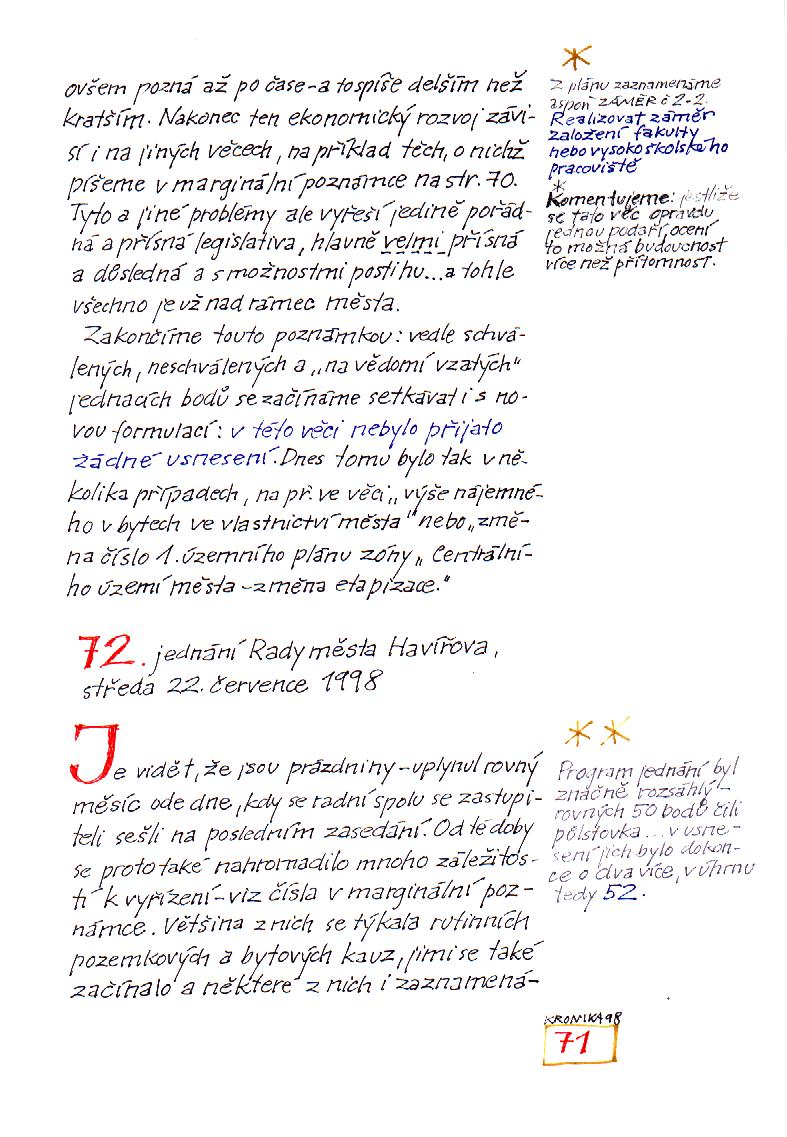 ovšem pozná až po čase-a to spíše delším než
kratším. Nakonec ten ekonomický rozvoj závi-
sí i na jiných věcech, na příklad těch, o nichž
píšeme v marginální poznámce na str. 70.
Tyto a jiné problémy ale vyřeší jedině pořád-
ná a přísná legislativa, hlavně velmi přísná
a důsledná a s možnostmi postihu...a tohle
všechno je už nad rámec města.
Zakončíme touto poznámkou: vedle schvá-
lených, neschválených a „na vědomí vzatých"
jednacích bodů se začínáme setkávat i s no-
vou formulací: v této věci nebylo přijato
žádné usnesení. Dnes tomu bylo tak v ně-
kolika případech, na př. ve věci „výše nájemné-
ho v bytech ve vlastnictví města" nebo „změ-
na číslo 1. územního plánu zóny „Centrální-
ho území města-změna etapizace."
*
Z plánu zaznamenáme
aspoň ZÁMĚR č 2-2.
Realizovat záměr
založení fakulty
nebo vysokoškolského
pracoviště
*
Komentujeme: jestliže
se tato věc opravdu
jednou podaří, ocení
to možná budoucnost
více než přítomnost.
72. jednání Rady města Havířova,
středa 22. července 1998
Je vidět, že jsou prázdniny-uplynul rovný
měsíc ode dne, kdy se radní spolu se zastupi-
teli sešli na posledním zasedání. Od té doby
se proto také nahromadilo mnoho záležitos-
tí k vyřízení-viz čísla v marginální poz-
námce. Většina z nich se týkala rutinních
pozemkových a bytových kauz, jimi se také
začínalo a některé z nich i zaznamená-
* *
Program jednání byl
značně rozsáhlý-
rovných 50 bodů čili
půlstovka... v usne-
sení jich bylo dokon-
ce o dva více, v úhrnu
tedy 52.
KRONIKA 98
71